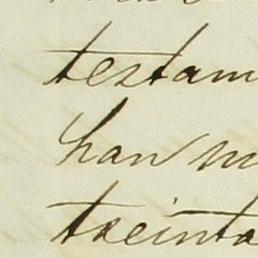 testam
han m
treinta